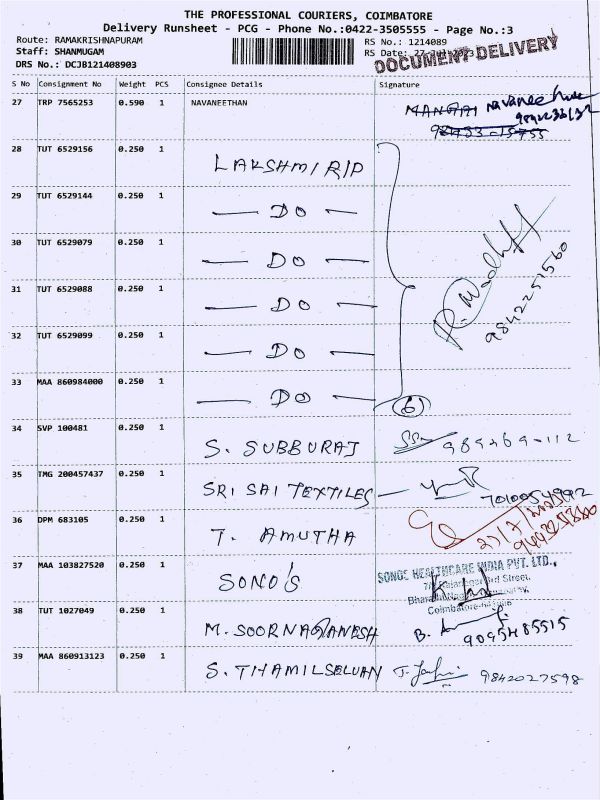 THE PROFESSIONAL COURIERS, COIMBATORE
Delivery Runsheet - PCG - Phone No.:0422-3505555 - Page No.:3
Route: RAMAKRISHNAPURAM
RS No.: 1214089
Staff: SHANMUGAM
RS Date: 27-Jul-2023
DOCUMENT DELIVERY
DRS No.: DCJB121408903
S No Consignment No Weight PCS Consignee Details Signature
27 TRP 7565253 0.590 1 NAVANEETHAN MANGAI
28 TUT 6529156 0.250 1 LAKSHMI RIP
29 TUT 6529144 0.250 1 — DO —
30 TUT 6529079 0.250 1 — DO —
31 TUT 6529088 0.250 1 — DO —
9842251560
32 TUT 6529099 0.250 1 — DO —
33 MAA 860984000 0.250 1 — DO — (6)
34 SVP 100481 0.250 1 S. SUBBURAJ
35 TMG 200457437 0.250 1 SRI SAI TEXTILES — 7010054992
36 DPM 683105 0.250 1 T. AMUTHA
37 MAA 103827520 0.250 1 SONO'S
SONOS HEALTHCARE INDIA PVT. LTD.,
Street,
Coimbatore
38 TUT 1027049 0.250 1 M. SOORNAGANESH B. 9095485515
39 MAA 860913123 0.250 1 S. THAMILSELVAN 9842027598